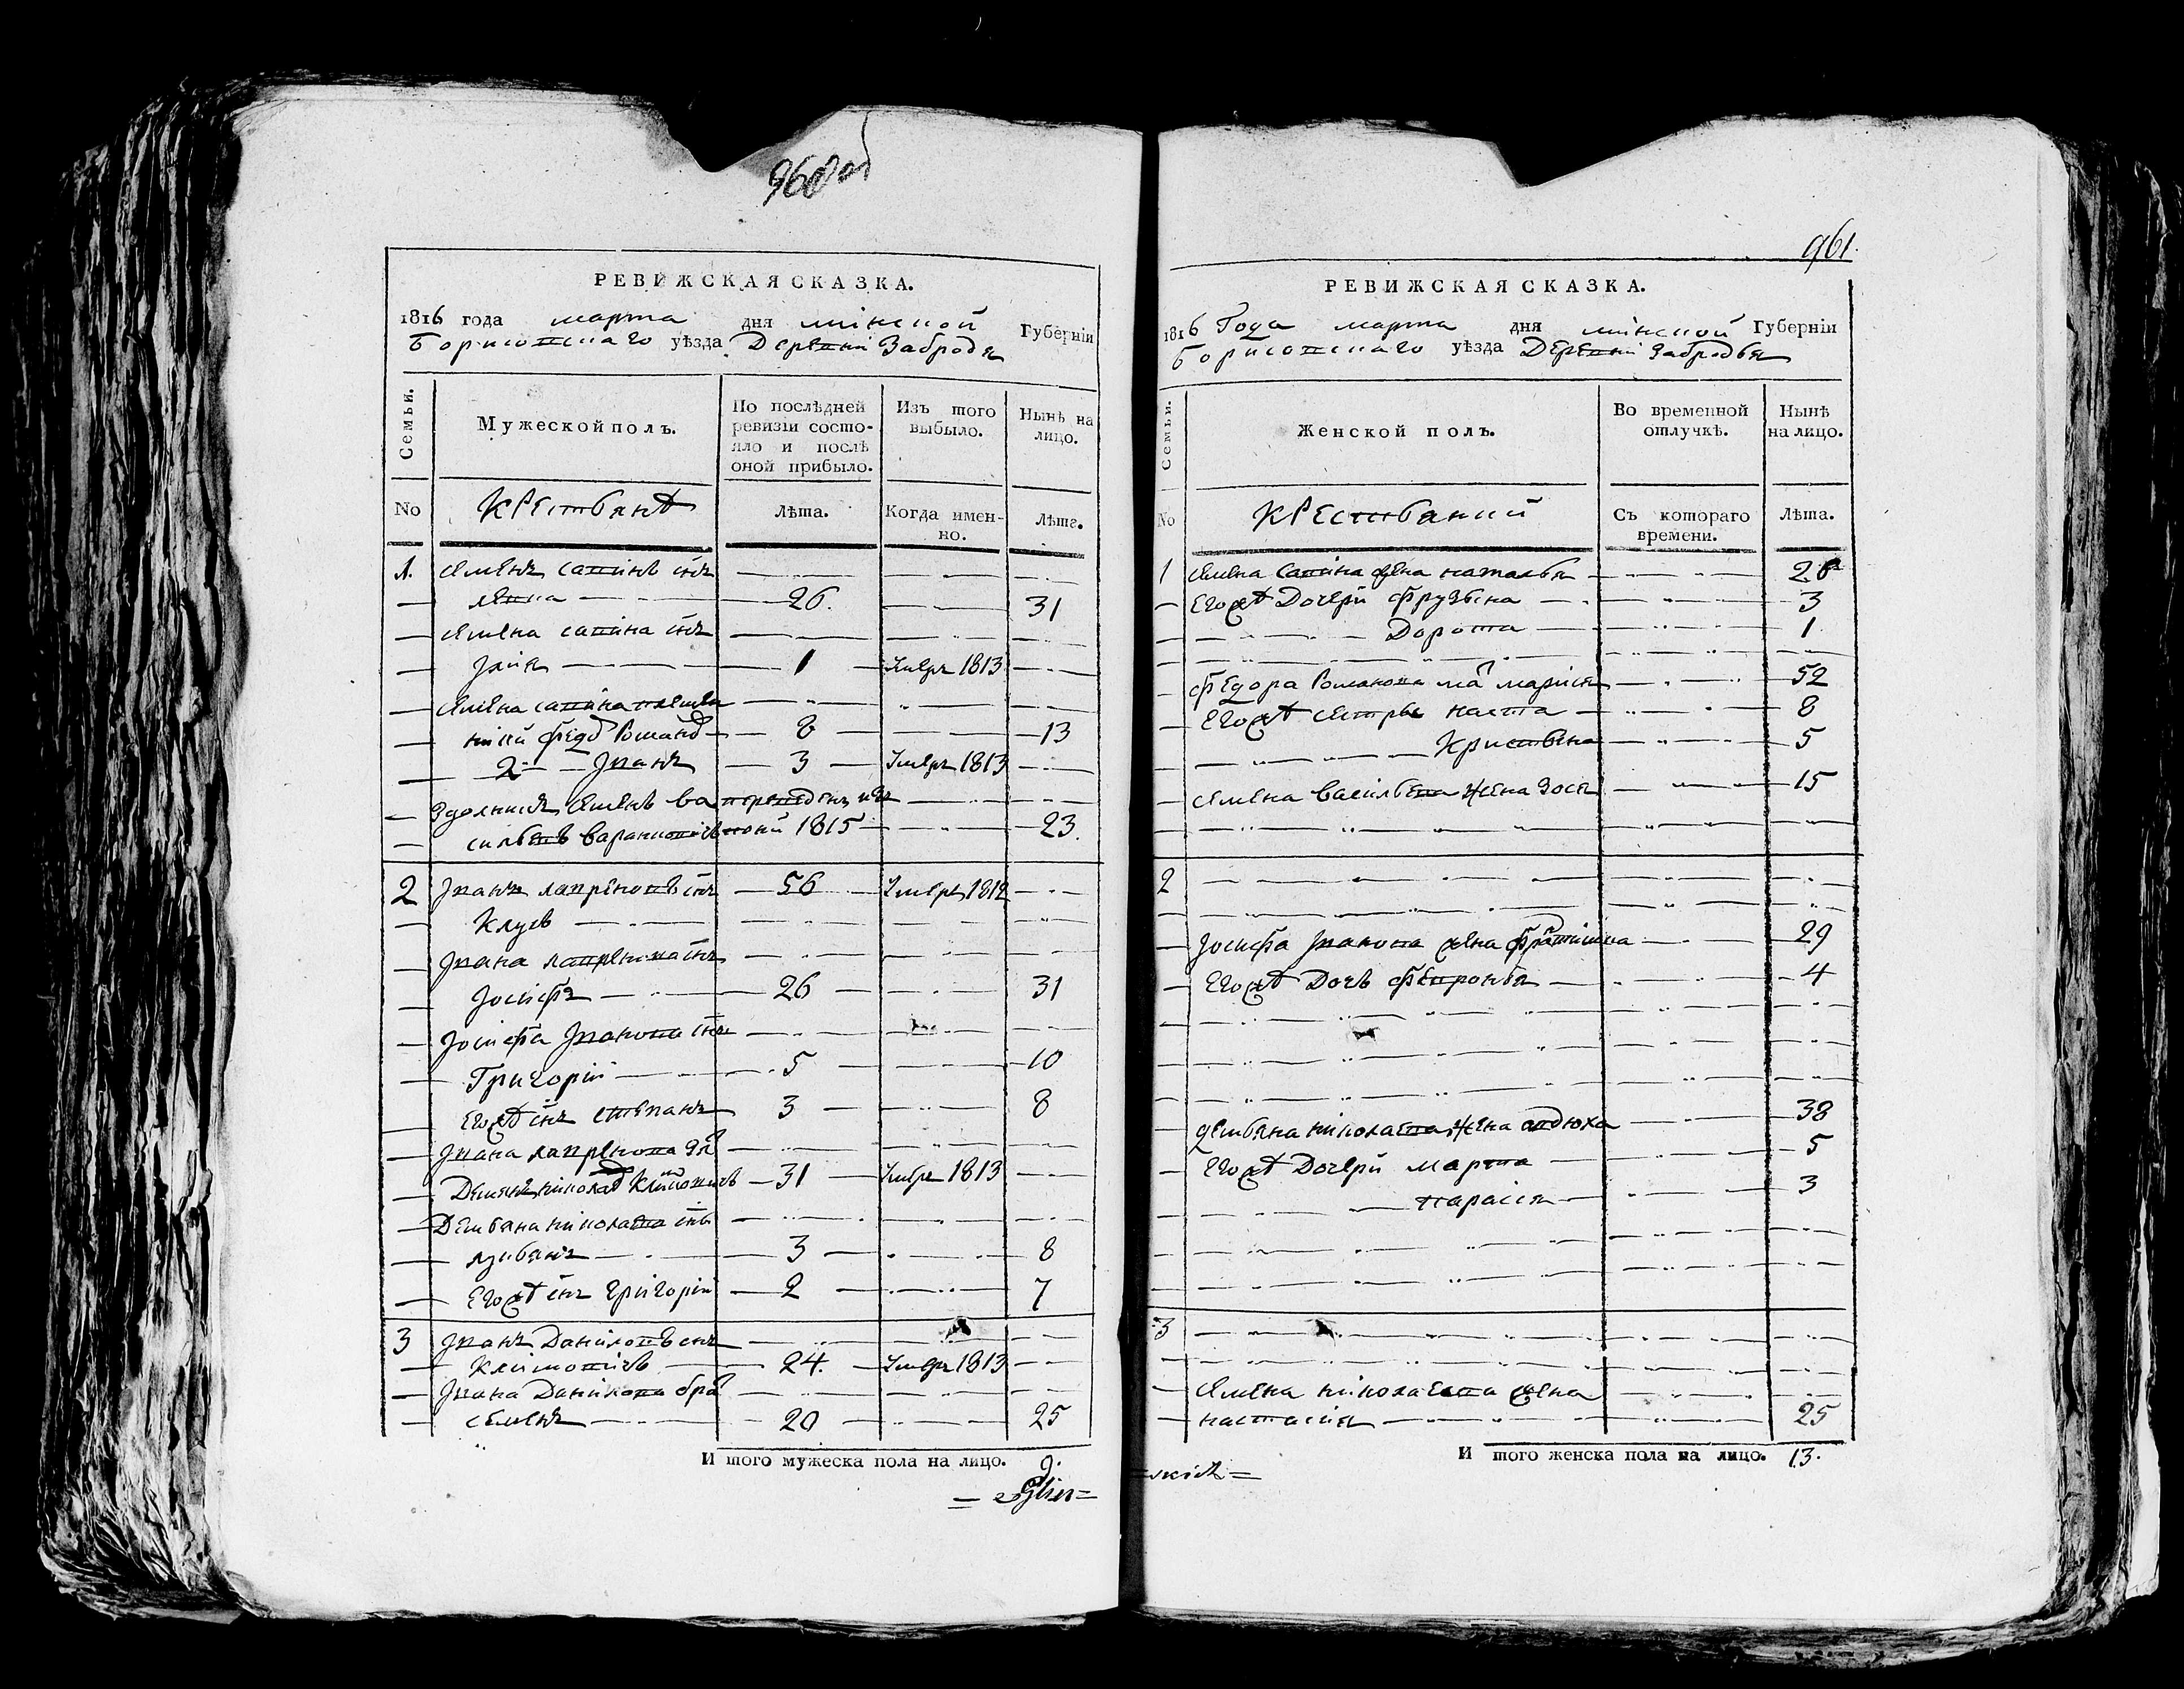 961.
РЕВИЖСКАЯ СКАЗКА.
1816 года марта дня мінской Губерніи
Борисовскаго уѣзда Деревни Забродя
Семьи.
Мужеской полъ.
По послѣдней ревизіи состояло и послѣ оной прибыло.
Изъ того выбыло.
Нынѣ на лицо.
No
Крестьянъ
лѣта.
Когда именно.
лѣта.
1. Семенъ савинъ снъ
26. 31
Семена савина снъ
1 Умеръ 1813
Семена савина племян
ники федоръ Романовъ 8 13
2й Иванъ 3 Умеръ 1813
Семенъ ва переведенъ изъ
сильевъ 1815 23.
2 Иванъ лавреновъ снъ 56 Умеръ 1812
Иванa лавренова снъ
Іосифъ 26 31
Іосифа Иванова снъ
Григорій 5 10
Егожъ снъ степанъ 3 8
Ивана лавренова
Демянъ николаевъ 31 Умеръ 1813
Демьяна николаева снъ
3 8
Егожъ снъ григорій 2 7
3 Иванъ Даниловъ снъ
Климовичъ 24. Умеръ 1813
Ивана Данилова бра
семенъ 20 25
И того мужеска пола на лицо. 9.
РЕВИЖСКАЯ СКАЗКА.
1816 Года марта дня мінской Губерніи
Борисовскаго уѣзда Деревни Забродья
Семьи.
Женской полъ.
Во временной отлучкѣ.
Нынѣ на лицо.
No
Крестьянки
Съ котораго времени.
Лѣта.
1 Семена Савина жена наталья
Егожъ Дочери фрузына 3
Дорота 1
Федора Романова ма марися 52
Егожъ сестры наста 8
Кристина 5
Семена васильева жена Зося 15
2
Іосифа Иванова жена 29
Егожъ Дочь февронья 4
Демьяна николаева жена авдюха 38
Егожъ Дочери марта 5
парасія 3
3
Семена николаева жена
настасія 25
И того женска пола на лицо. 13.